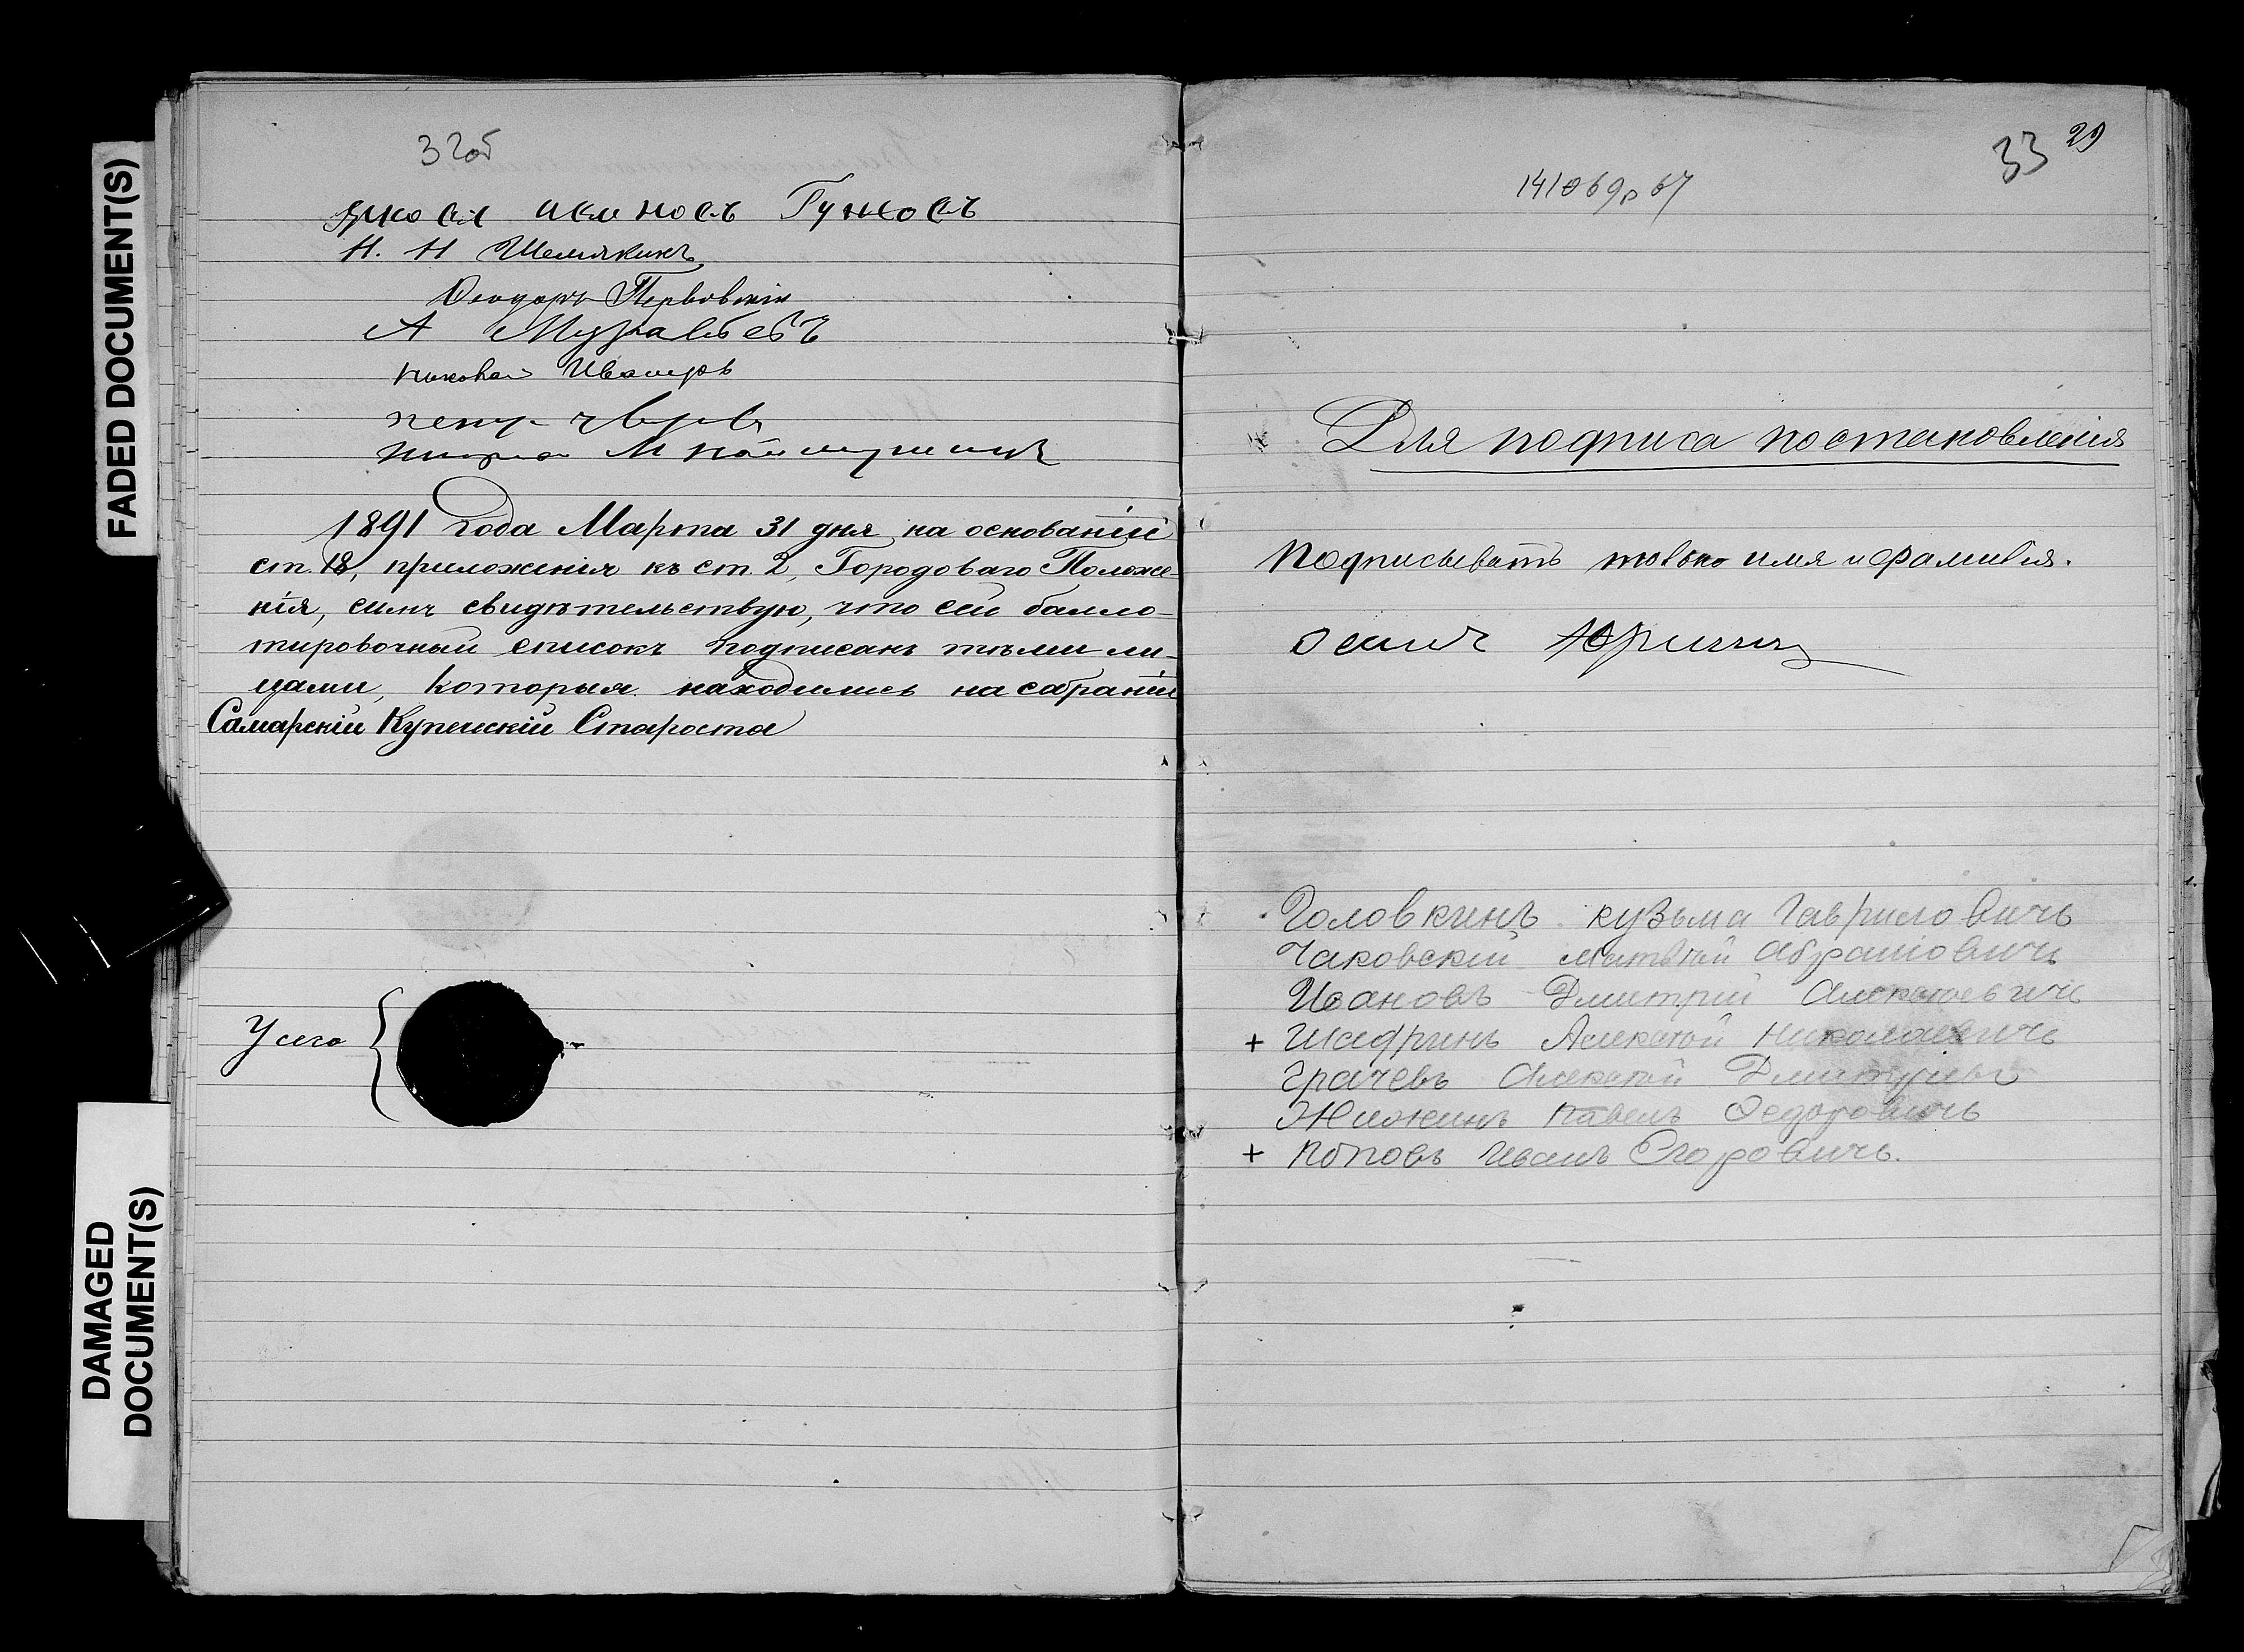 FADED DOCUMENT(S)
DAMAGED
DOCUMENT(S)
32об
Н. Н Шемякинъ
Феодоръ
А Муравьевъ
николай
петр
М
1891 года Марта 31 дня, на основаніи
ст. 18, приложенія къ ст. 2, Городоваго Положе-
нія, симъ свидѣтельствую, что сей балло-
тировочный списокъ подписанъ тѣми ли-
цами, которыя находились на собраніи
Самарскій Купеческій Староста
У сего
33 29
Для подписа постановленія
Подписывать только имя и фамилія.
осипъ Юринъ
Головкинъ кузьма Гавриловичъ
Чаковскій Матвѣй Абрамовичъ
Ивановъ Дмитрій Алексѣевичъ
+ Шадринъ Алексѣй Николаевичъ
Грачевъ Алексѣй Дмитріевъ
Павелъ Федоровичъ
+ Поповъ Иванъ Егоровичъ.